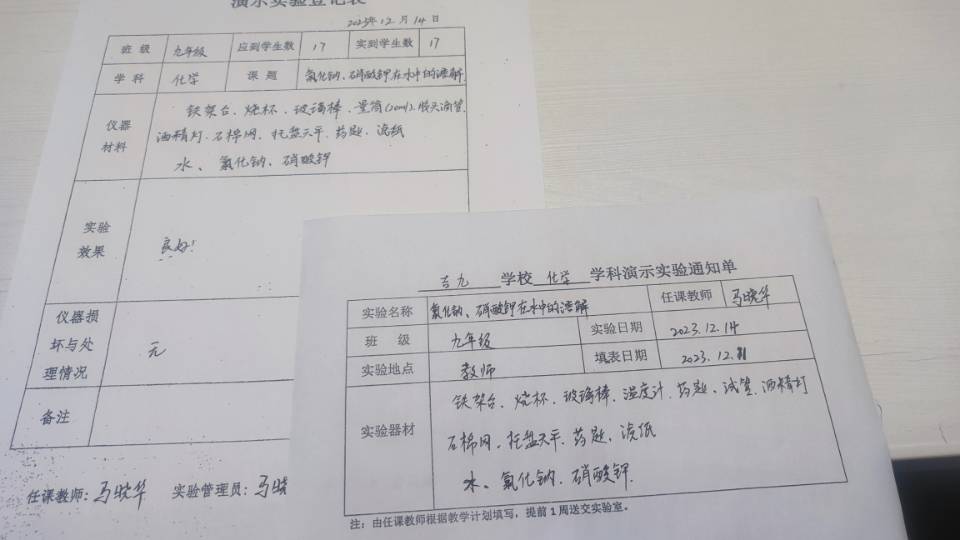 演示实验登记表
2023年12月14日
班 级 九年级 应到学生数 17 实到学生数 17
学 科 化学 课 题 氯化钠、硝酸钾在水中的溶解
仪器材料 铁架台、烧杯、玻璃棒、量筒(20ml)、胶头滴管、
酒精灯、石棉网、托盘天平、药匙、滤纸
水、氯化钠、硝酸钾
实验效果 良好!
仪器损坏与处理情况 无
备注
任课教师:马晓华 实验管理员:马晓
吉九 学校 化学 学科演示实验通知单
实验名称 氯化钠、硝酸钾在水中的溶解 任课教师 马晓华
班 级 九年级 实验日期 2023.12.14
实验地点 教师 填表日期 2023.12.11
实验器材 铁架台、烧杯、玻璃棒、温度计、药匙、试管、酒精灯
石棉网、托盘天平、药匙、滤纸
水、氯化钠、硝酸钾.
注:由任课教师根据教学计划填写,提前1周送交实验室。